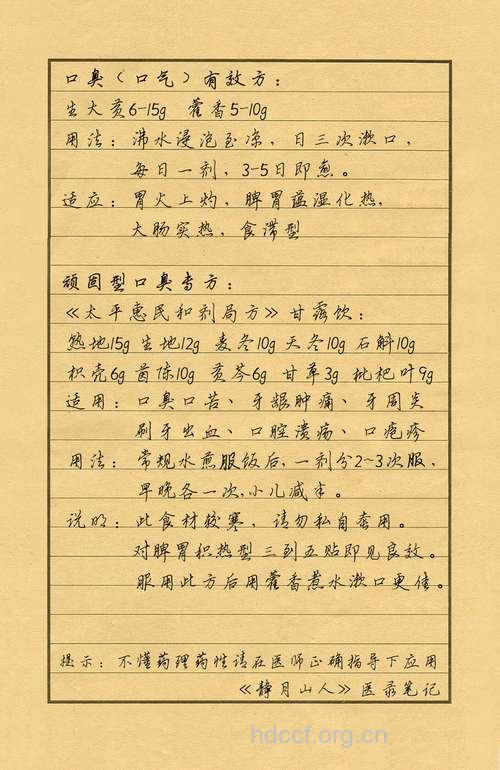 口臭（口气）有效方：
生大黄6-15g 藿香5-10g
用法：沸水浸泡至凉，日三次漱口，
每日一剂，3-5日即愈。
适应：胃火上灼，脾胃蕴湿化热，
大肠实热，食滞型
顽固型口臭专方：
《太平惠民和剂局方》甘露饮：
熟地15g 生地12g 麦冬10g 天冬10g 石斛10g
枳壳6g 茵陈10g 黄芩6g 甘草3g 枇杷叶9g
适用：口臭口苦、牙龈肿痛、牙周炎
刷牙出血、口腔溃疡、口疱疹
用法：常规水煎服饭后，一剂分2~3次服，
早晚各一次，小儿减半。
说明：此食材较寒，请勿私自套用。
对脾胃积热型三到五贴即见良效。
服用此方后用藿香煮水漱口更佳。
提示：不懂药理药性请在医师正确指导下应用
《静月山人》医录笔记
hdccf.org.cn